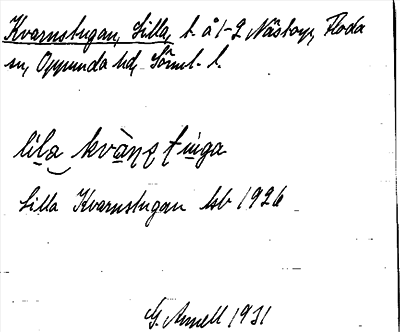 Kvarnstugan, Lilla, t. å 1-2 Nästorp, Floda
sn, Oppunda hd, Söml. l.
lila kvàṇṣtuga
Lilla Kvarnstugan hb 1926
G. Annell 1931